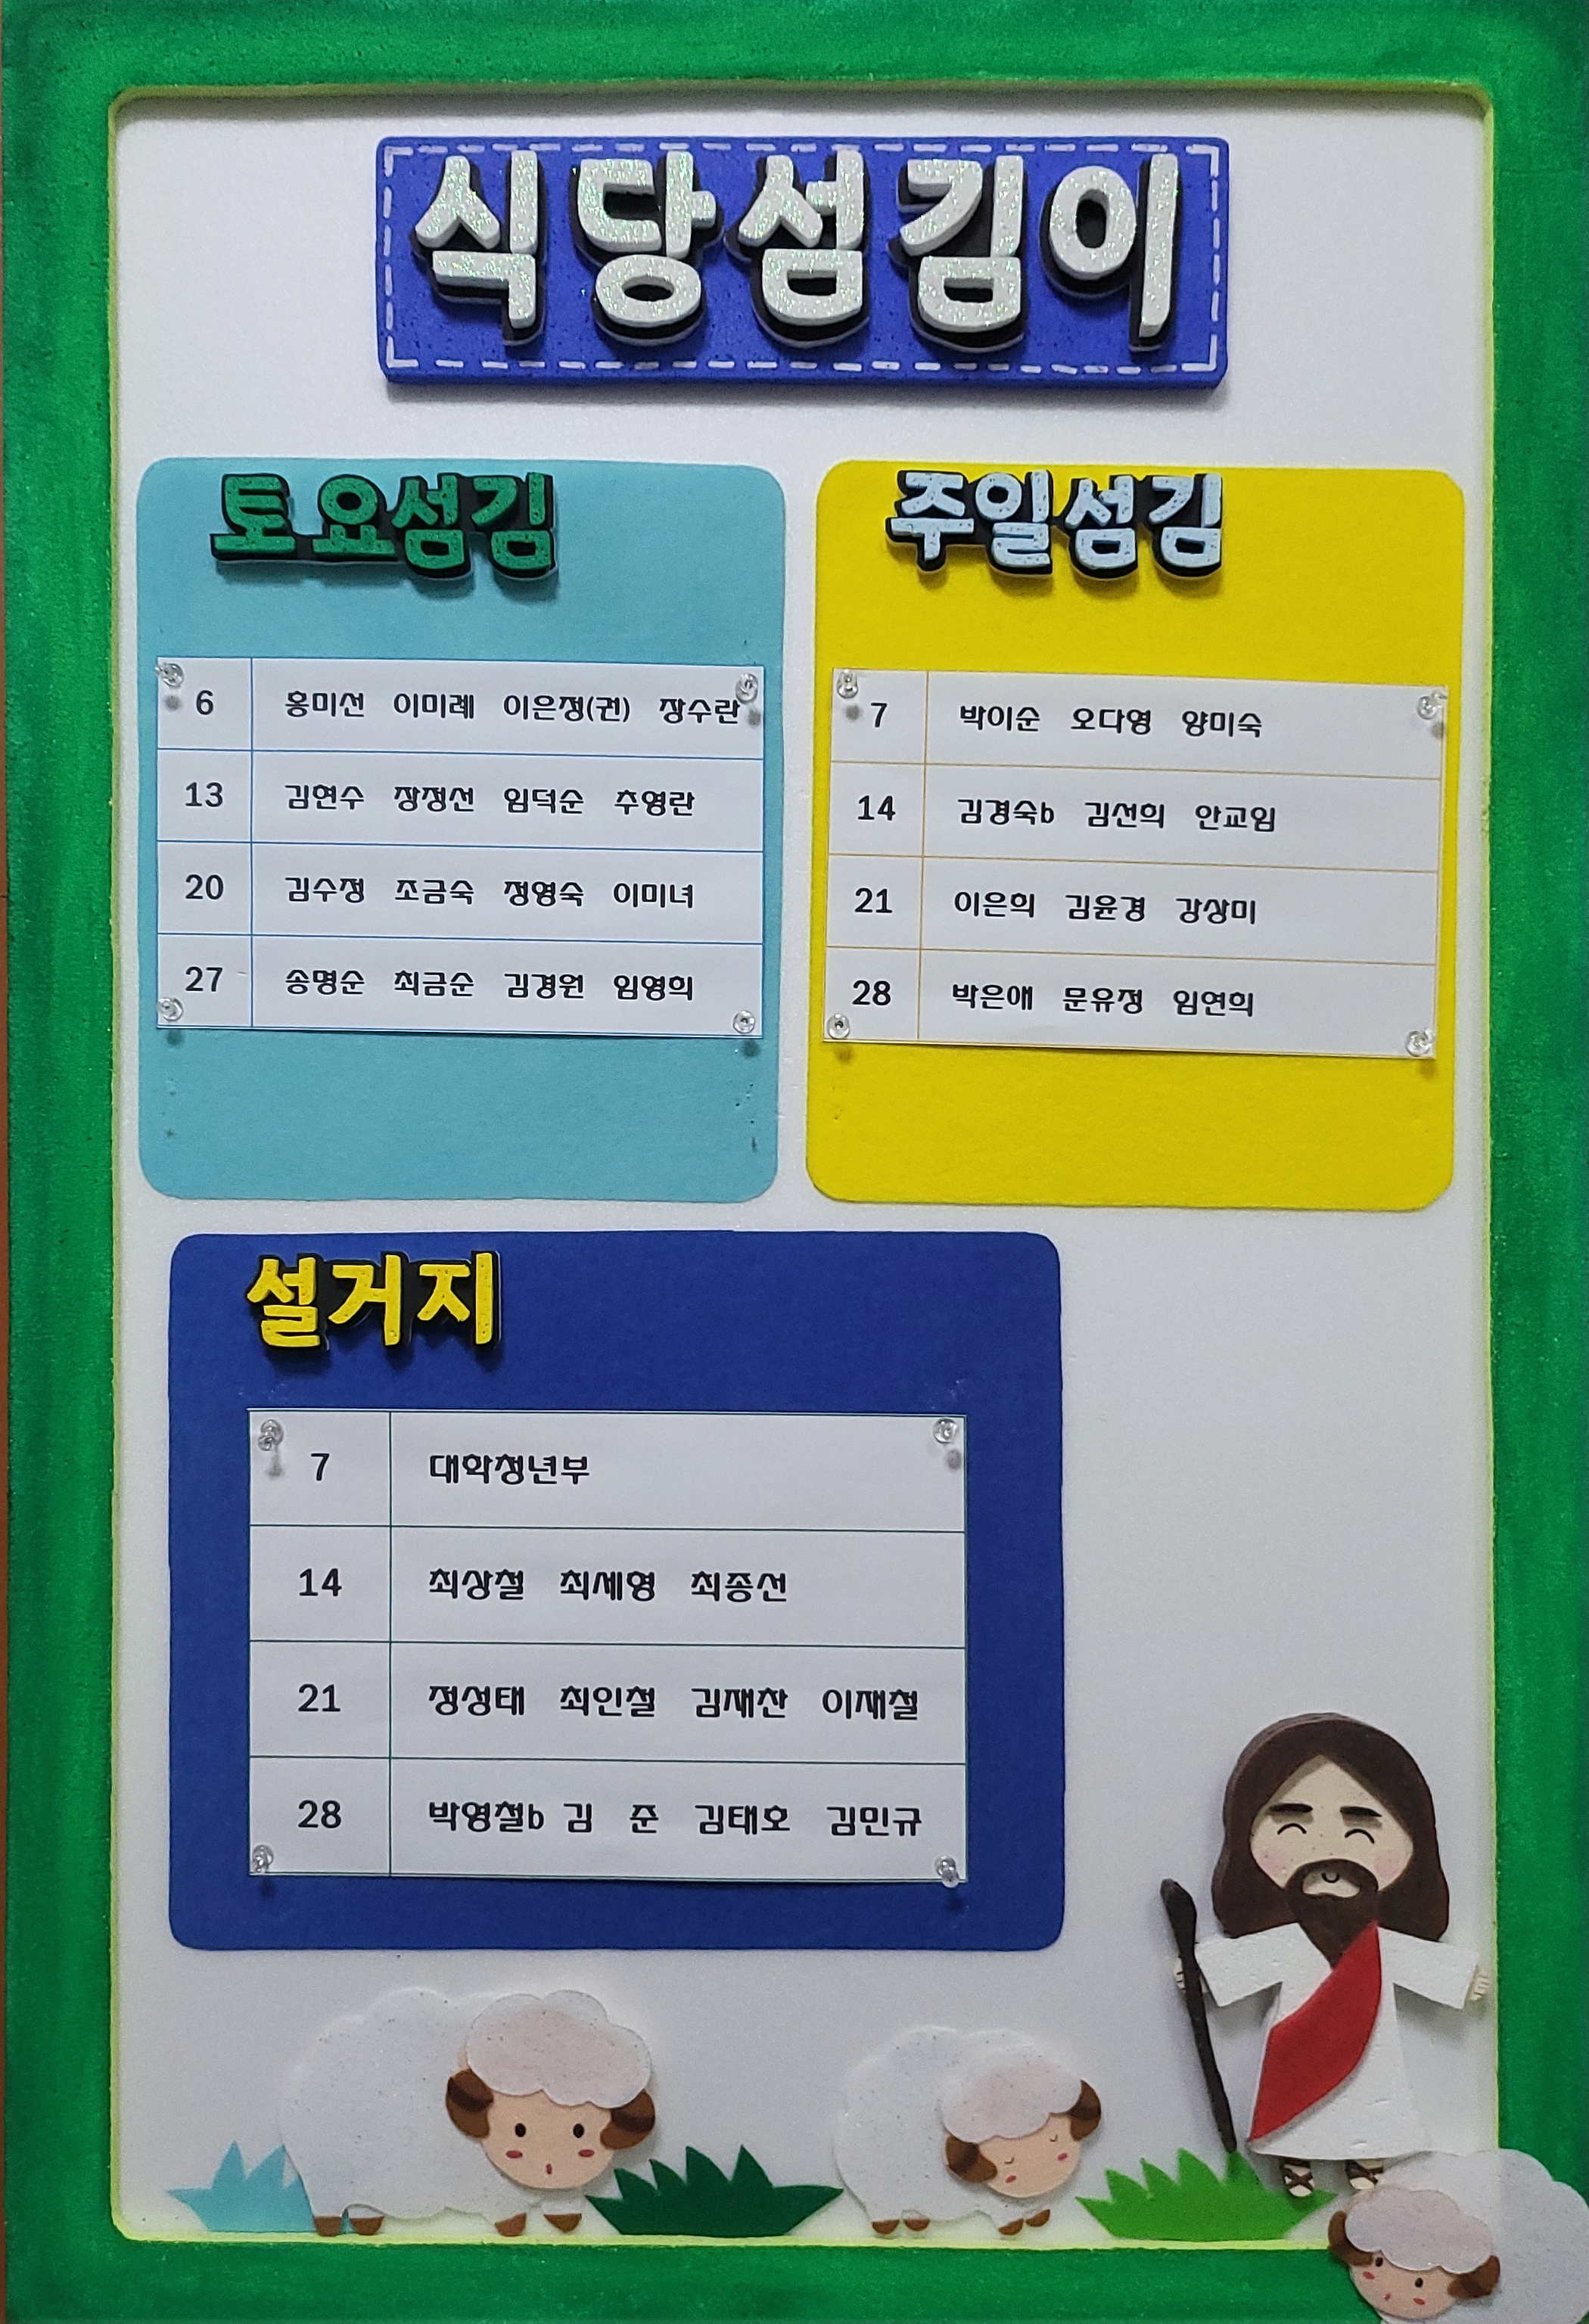 식당섬김이
토요섬김
6 홍미선 이미례 이은정(권) 장수란
13 김연수 장정선 임덕순 추영란
20 김수정 조금숙 정영숙 이미녀
27 송명순 최금순 김경원 임영희
주일섬김
7 박이순 오다영 양미숙
14 김경숙b 김선희 안교임
21 이은희 김윤경 강상미
28 박은애 문유정 임연희
설거지
7 대학청년부
14 최상철 최세형 최종선
21 정성태 최인철 김재찬 이재철
28 박영철b 김 준 김태호 김민규